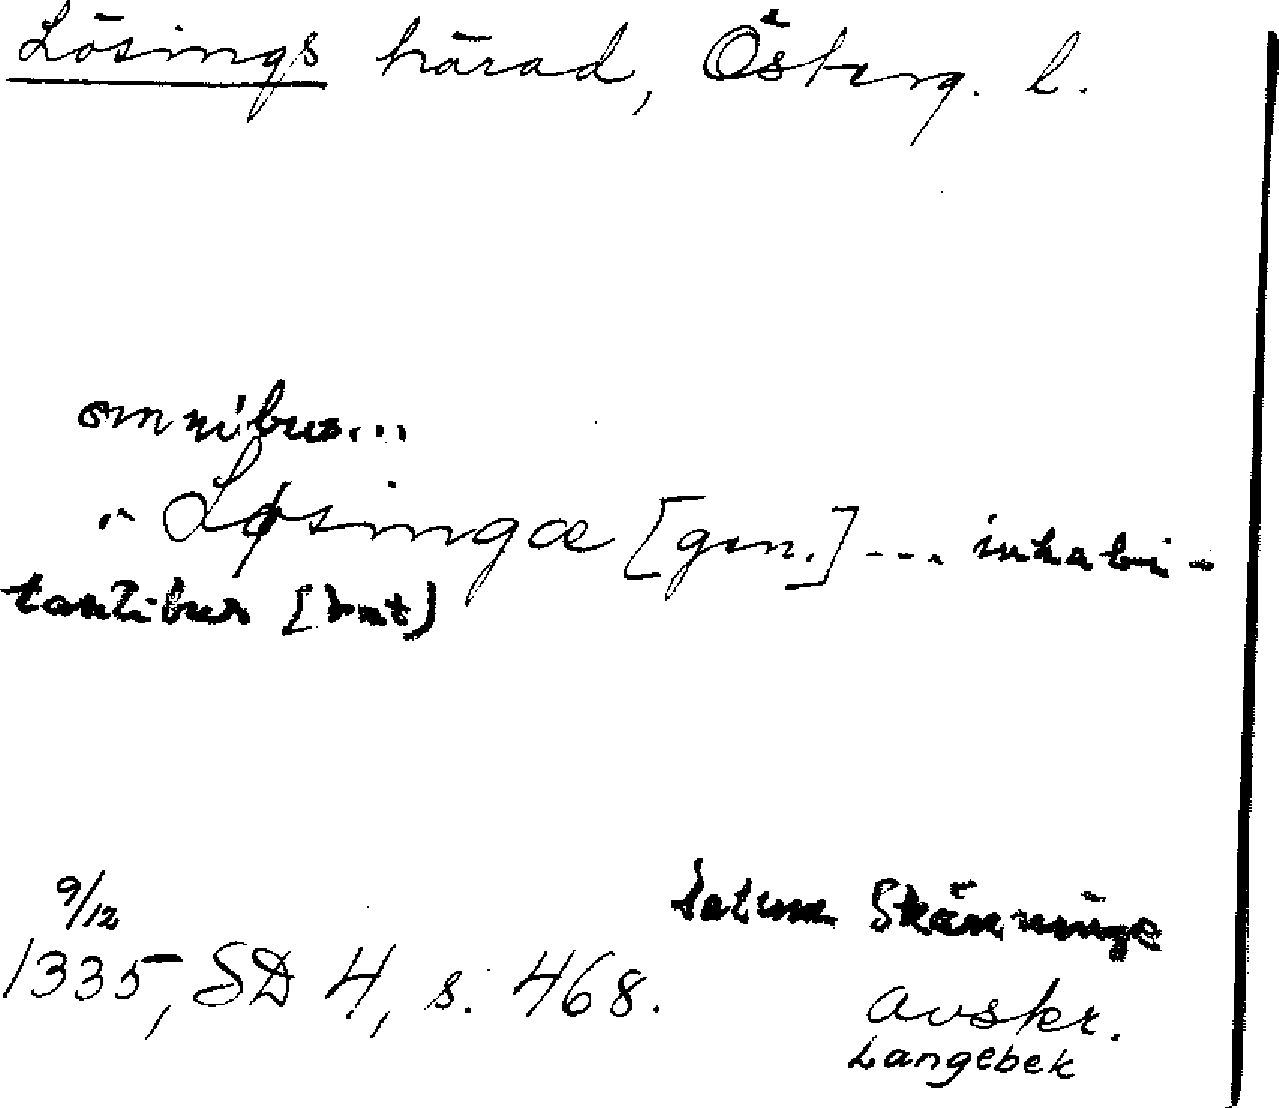 Lösings härad, Österg. l.
omnibus...
.. Løsingæ [gen.] ---. inhabi-
tantibus [lat]
9/12
1335, SD 4, s. 468. datum Skänninge
avskr.
Langebek